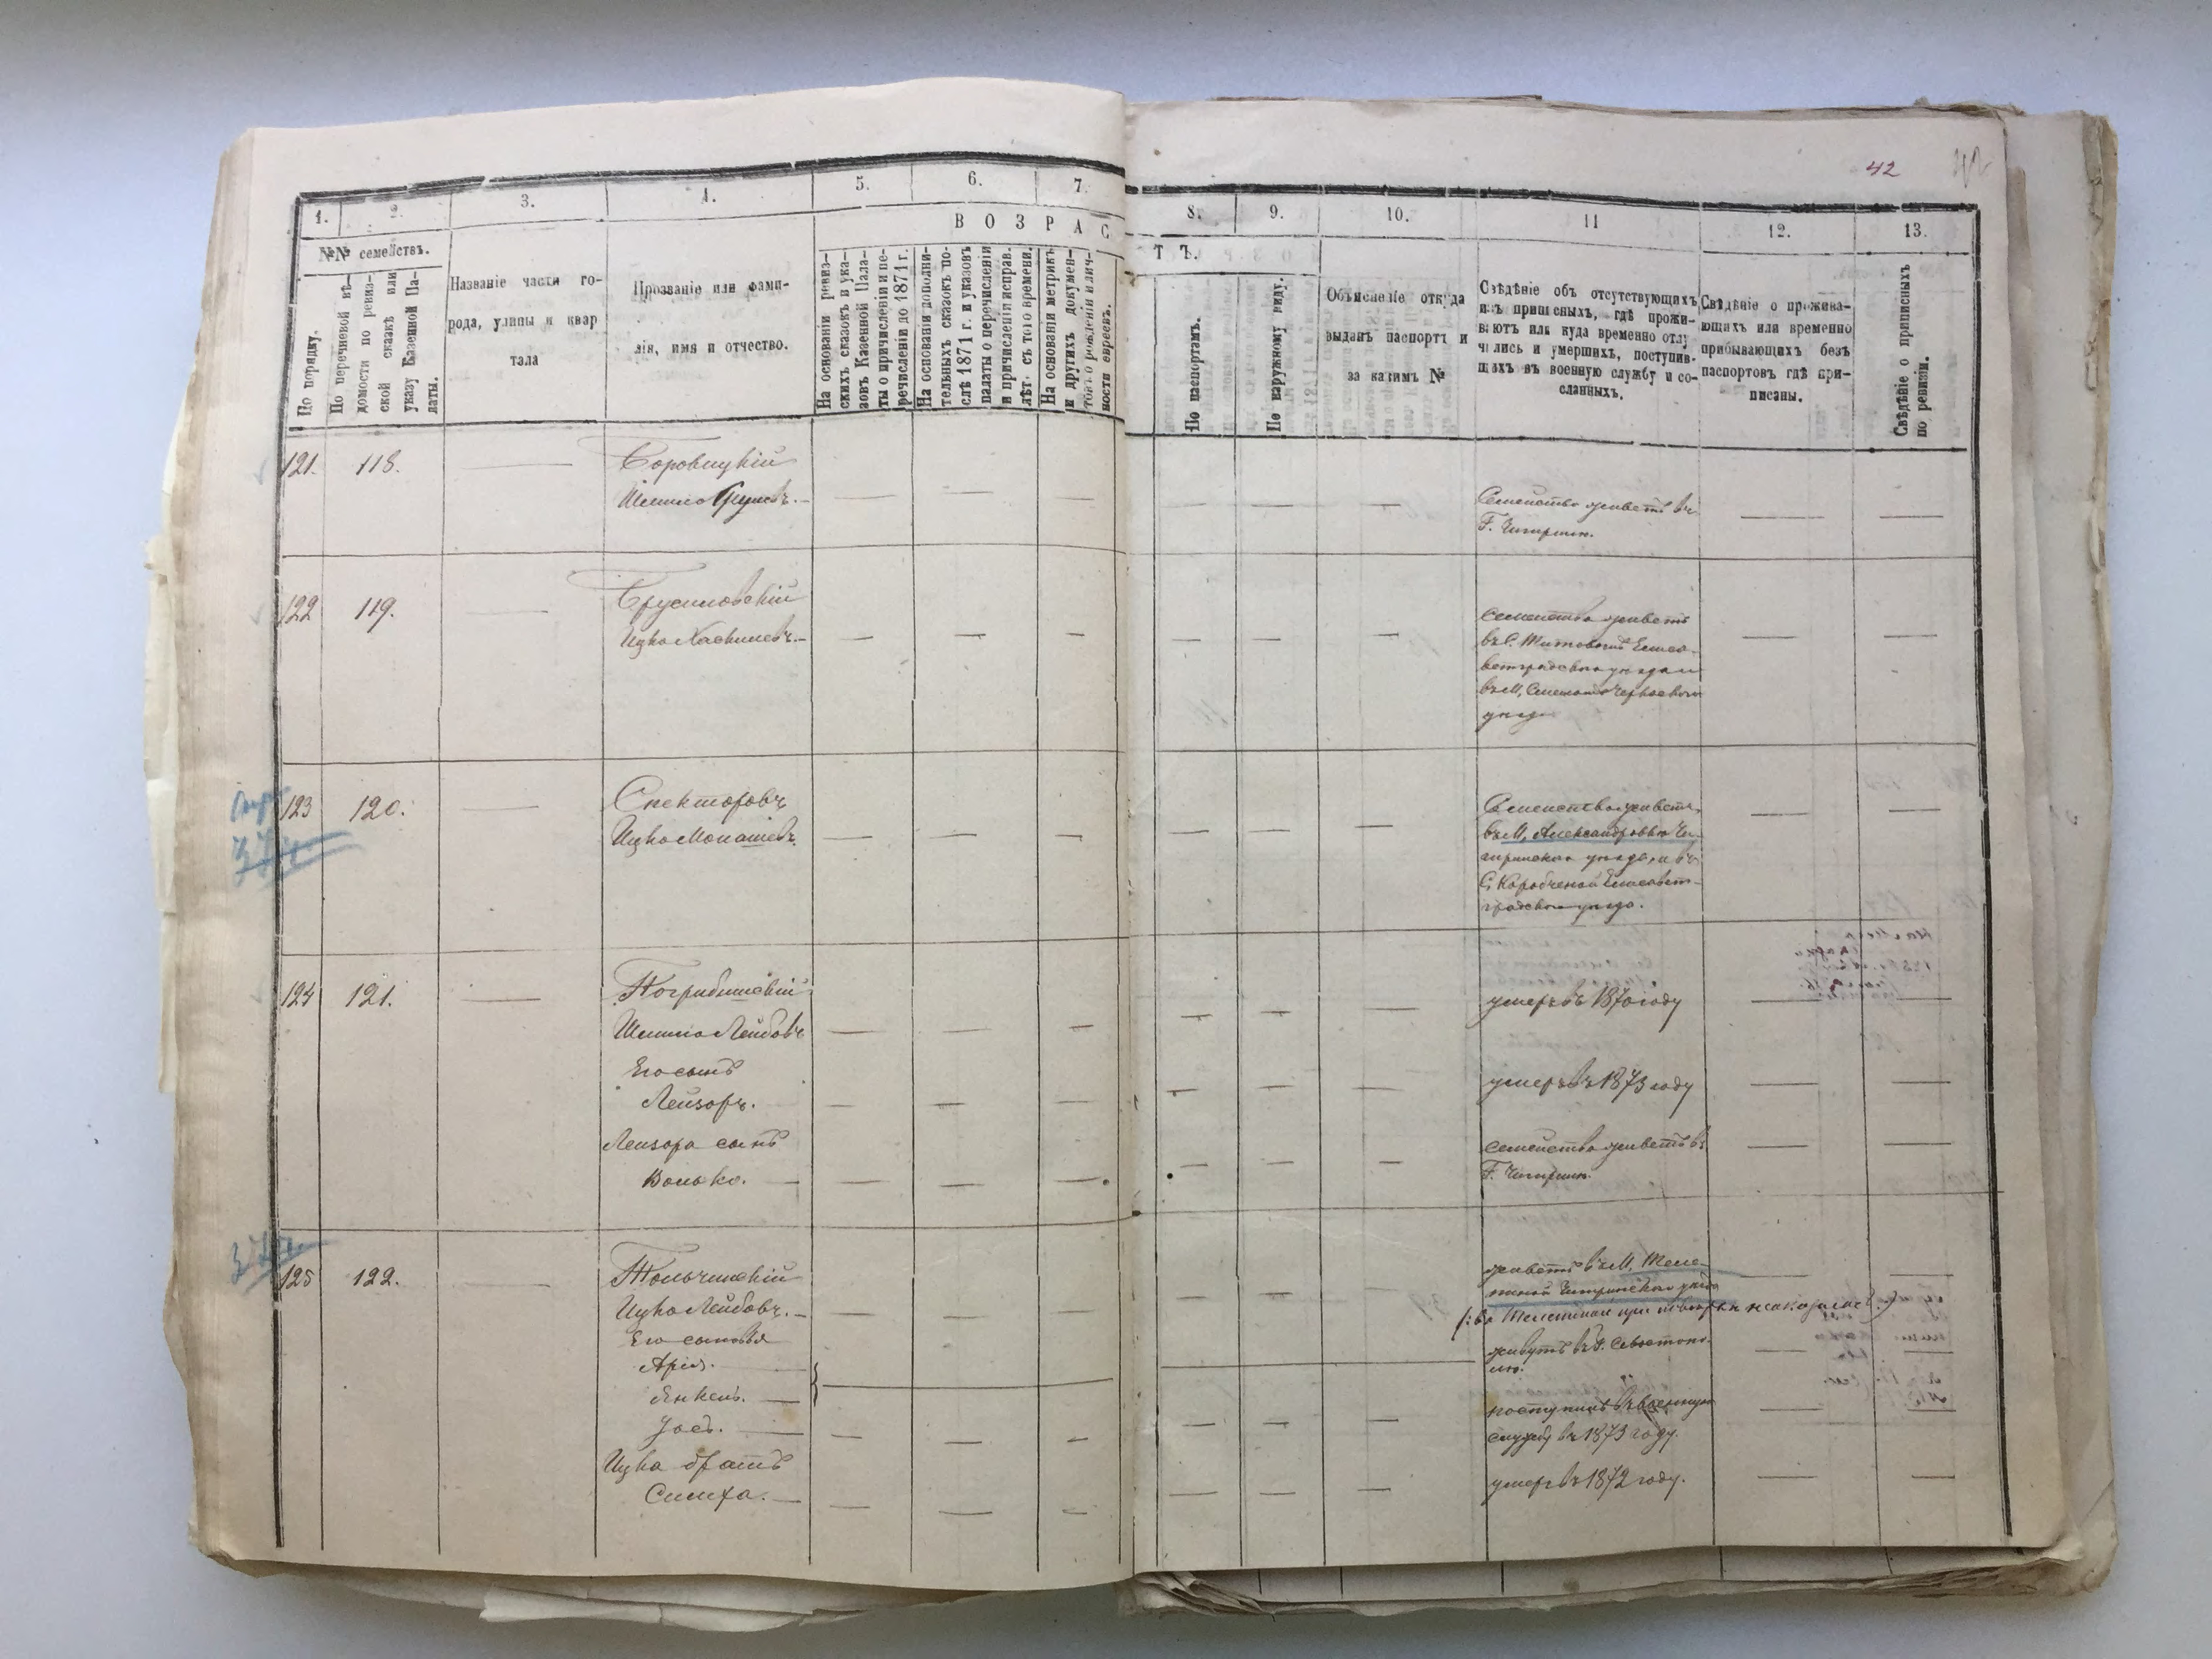 42
1.
2.
3.
4.
5.
6.
7.
8.
9.
10.
11
12.
13.
№№ семействъ.
По порядку.
По перечневой вѣ-
домости по ревиз-
ской сказкѣ или
указу Казенной Па-
латы.
Названіе части го-
рода, улицы и квар
тала
Прозваніе или фами-
лія, имя и отчество.
ВОЗРАС
ТЪ.
На основаніи ревиз-
скихъ сказокъ и ука-
зовъ Казенной Пала-
ты о причисленіи и пе-
речисленіи до 1871 г.
На основаніи дополни-
тельныхъ сказокъ по-
слѣ 1871 г. и указовъ
палаты о перечисленіи
и причисленіи исправ.
лѣт. съ того времени.
На основаніи метрикъ
и другихъ докумен-
товъ о рожденіи и лич-
ности евреевъ.
По паспортамъ.
По наружному виду.
Объясненіе откуда
выданъ паспортъ и
за какимъ №
Свѣдѣніе объ отсутствующихъ
изъ приписныхъ, гдѣ прожи-
ваютъ или куда временно отлу
чились и умершихъ, поступив-
шихъ въ военную службу и со-
сланныхъ.
Свѣдѣніе о прожива-
ющихъ или временно
прибывающихъ безъ
паспортовъ гдѣ при-
писаны.
Свѣдѣніе о приписныхъ
по ревизіи.
121. 118.
Боровицкій
Шмило
Семейство живетъ въ
Г. Чигирин.
122 119.
Брусиловскій
Ицко Хаскилевъ.
Семейство живетъ
въ С. Елиса-
ветградскаго уѣзда и
въ М. Черкаского
уѣзд
123 120.
Спекторовъ
Ицко Монашевъ.
Семейство живетъ
въ М. Александровкѣ Чи-
гиринскаго уѣзда, и въ
С. Коробченой Елисавет-
градскаго уѣзда.
124 121.
Погребишскій
Шмило Лейбовъ
умеръ въ 1870 году
Его сынъ
Лейзоръ.
умеръ въ 1873 году
Лейзора сынъ
Волько.
семейство живетъ въ
Г. Чигирин.
125 122.
Тольчинскій
Ицко Лейбовъ.
живетъ въ М. Теле-
пиной Чигиринскаго уѣзда
Его сыновья
Арія.
Янкель.
живутъ въ Г. Севастопо-
лѣ.
Іосъ.
поступилъ въ военную
службу въ 1873 году.
Ицка братъ
Симха.
умеръ въ 1872 году.